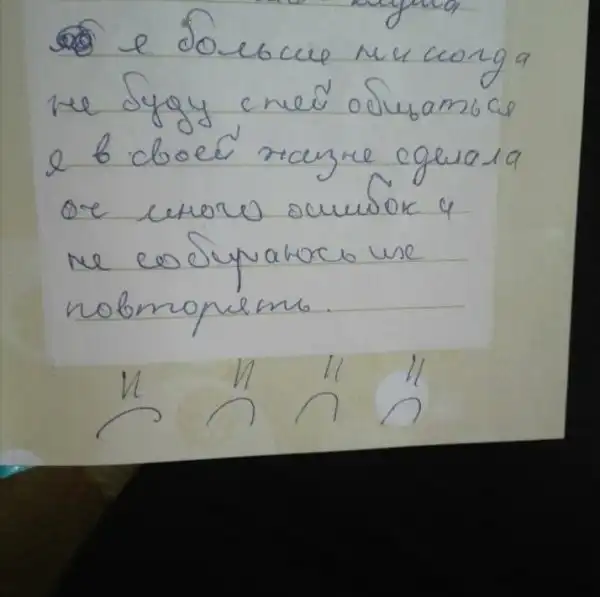 я больше ни когда
не буду с ней общаться
я в своей жизне сделала
оч много ошибок и
не собираюсь их
повторять.